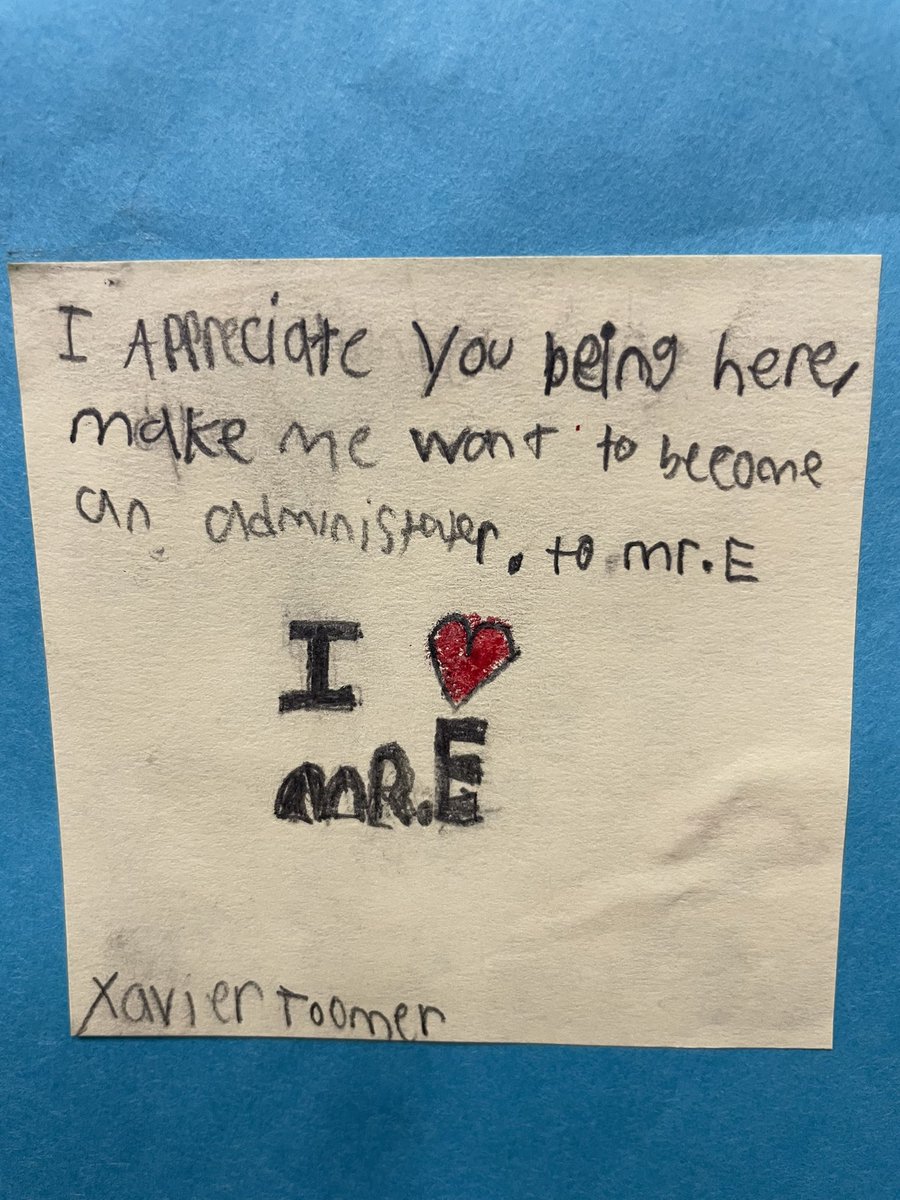 I Appreciate you being here,
make me want to become
an administaver. to mr.E
I ❤
mR.E
Xavier Toomer